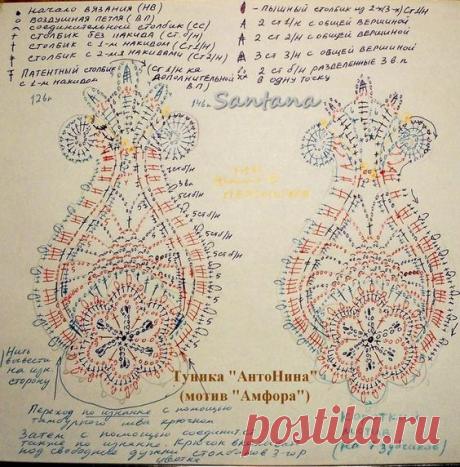 начало вязания (НВ)
воздушная петля (В.П)
соединительный столбик (СС)
столбик без накида (Ст б/н)
столбик с 1-м накидом (Ст1/н)
столбик с 2-мя накидами (Ст2/н)
Патентный столбик
с 1-м накидом
(Ст1/н на
дополнительной
В.П)
- Пышный столбик из 2-х(3-х) Ст1/н
- 2 ст1/н с общей вершиной
- 2 ст 2/н с общей вершиной
- 3 ст 3/н с общей вершиной
- 2 ст б/н разделенные 3 в.п
в одну точку
126г
146г
Santana
5ст б/н
3 в.п
5ст б/н
5ст б/н
5ст б/н
5ст б/н
5
5
5
Нить
вывести
на изн.
сторону
Туника "АнтоНина"
(мотив "Амфора")
Переход по изнанке с помощью
тамбурного шва крючком
Затем с помощью соедините
также по изнанке крючок
под свободные дужки столбиков 3-го р
цветка
postila.ru